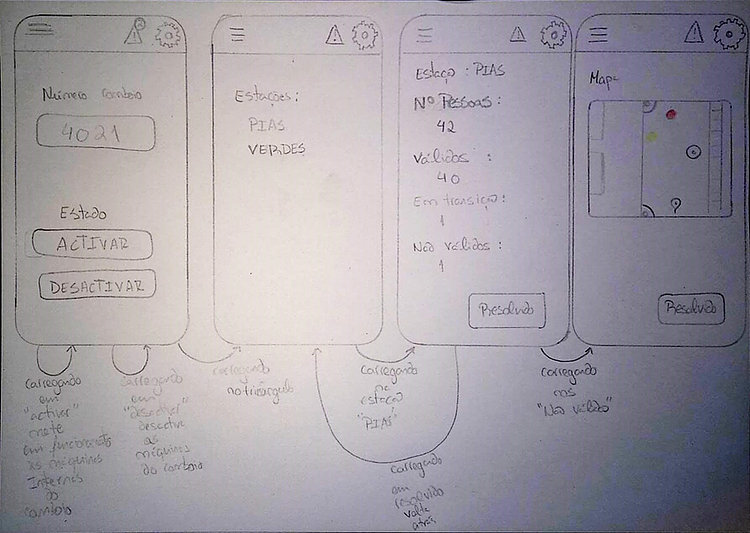 Número comboio
4021
Estado
ACTIVAR
DESACTIVAR
Estações:
PIAS
VERDES
Estação : PIAS
Nº Pessoas :
42
Válidos :
40
Em transição :
1
Não válidos :
1
Resolvido
Mapa
Resolvido
carregando
em
"activar"
mete
em funcionamento
as máquinas
Internas
do
comboio
carregando
em
"desactivar"
desactiva
as
máquinas
do comboio
carregando
no triângulo
carregando
na
estação
"PIAS"
carregando
em
resolvido
volta
atrás
carregando
nos
"Não válido"